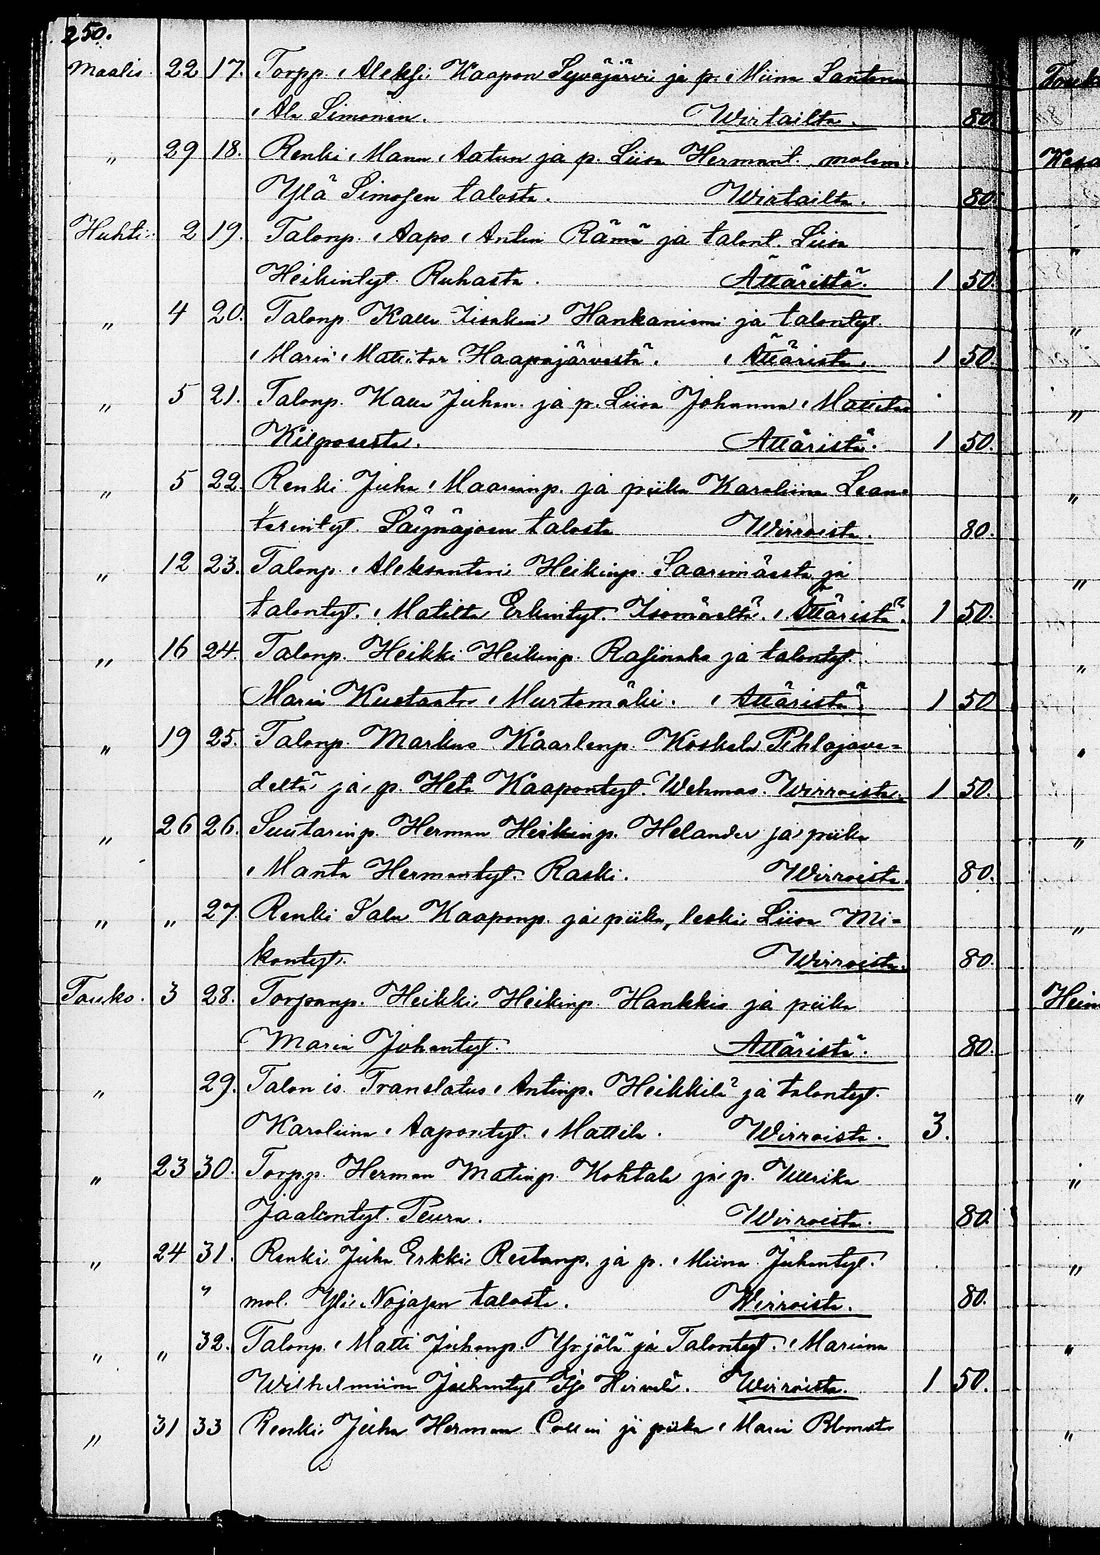 250.
Maalis. 22 17. Torpp. Aleksi Kaapon Syväjärvi ja p. Miina Santeria
Ala Simonen. Wirtailta. 80.
" 29 18. Renki Manu Aatun ja p. Liisa Hermant. molem:
Ylä Simosen talosta. Wirtailta. 80.
Huhti: 2 19. Talonp. Aapo Antin Rämä ja talont. Liisa
Heikintyt. Ruhasta. Ättäristä. 1 50.
" 4 20. Talonp. Kalle Iisakin Hankaniemi ja talontyt.
Maria Matintar Haapajärvestä. Ättäristä. 1 50.
" 5 21. Talonp. Kalle Juhan. ja p. Liisa Johanna Matitar
Kilposesta. Ättäristä. 1 50.
" 5 22. Renki Juha Maarianp. ja piika Karoliina Lean-
terintyt. Säynäjoen talosta Wirroista. 80.
" 12 23. Talonp. Aleksanteri Heikinp. Saarimäestä ja
talontyt. Matilta Erkintyt. Isomäeltä. Ättäristä. 1 50.
" 16 24. Talonp. Heikki Heikinp. Rasinaho ja talontyt.
Maria Kustaatr. Murtomäki. Ättäristä. 1 50
" 19 25. Talonp. Markus Kaarlenp. Koskela Pihlajave=
deltä ja p. Heta Kaapontyt. Wehmas. Wirroista. 1 50.
" 26 26. Suutarinp. Herman Heikinp. Helander ja piika
Manta Hermantyt. Raski. Wirroista. 80.
" " 27 Renki Salu Kaaponp. ja piika, leski Liisa Mi=
kontyt. Wirroista. 80.
Touko. 3 28. Torpanp. Heikki Heikinp. Hankkio ja piika
Maria Johantyt. Ättäristä. 80.
" 29. Talon is. Translatus Antinp. Heikkilä ja talontyt.
Karoliina Aapontyt. Mattila. Wirroista. 3.
" 23 30. Torpp. Herman Matinp. Kohtala ja p. Ullrika
Jaakontyt. Peura. Wirroista. 80.
" 24 31. Renki Juha Erkki Restanp. ja p. Miina Juhantyt.
" mol. Yli Nojasen talosta. Wirroista. 80.
" " 32. Talonp. Matti Juhonp. Yrjölä ja Talontyt. Mariana
Wilhelmiina Juhontyt Iso Hirvelä. Wirroista. 1 50.
" 31 33 Renki Juha Herman Collin ja piika Maria